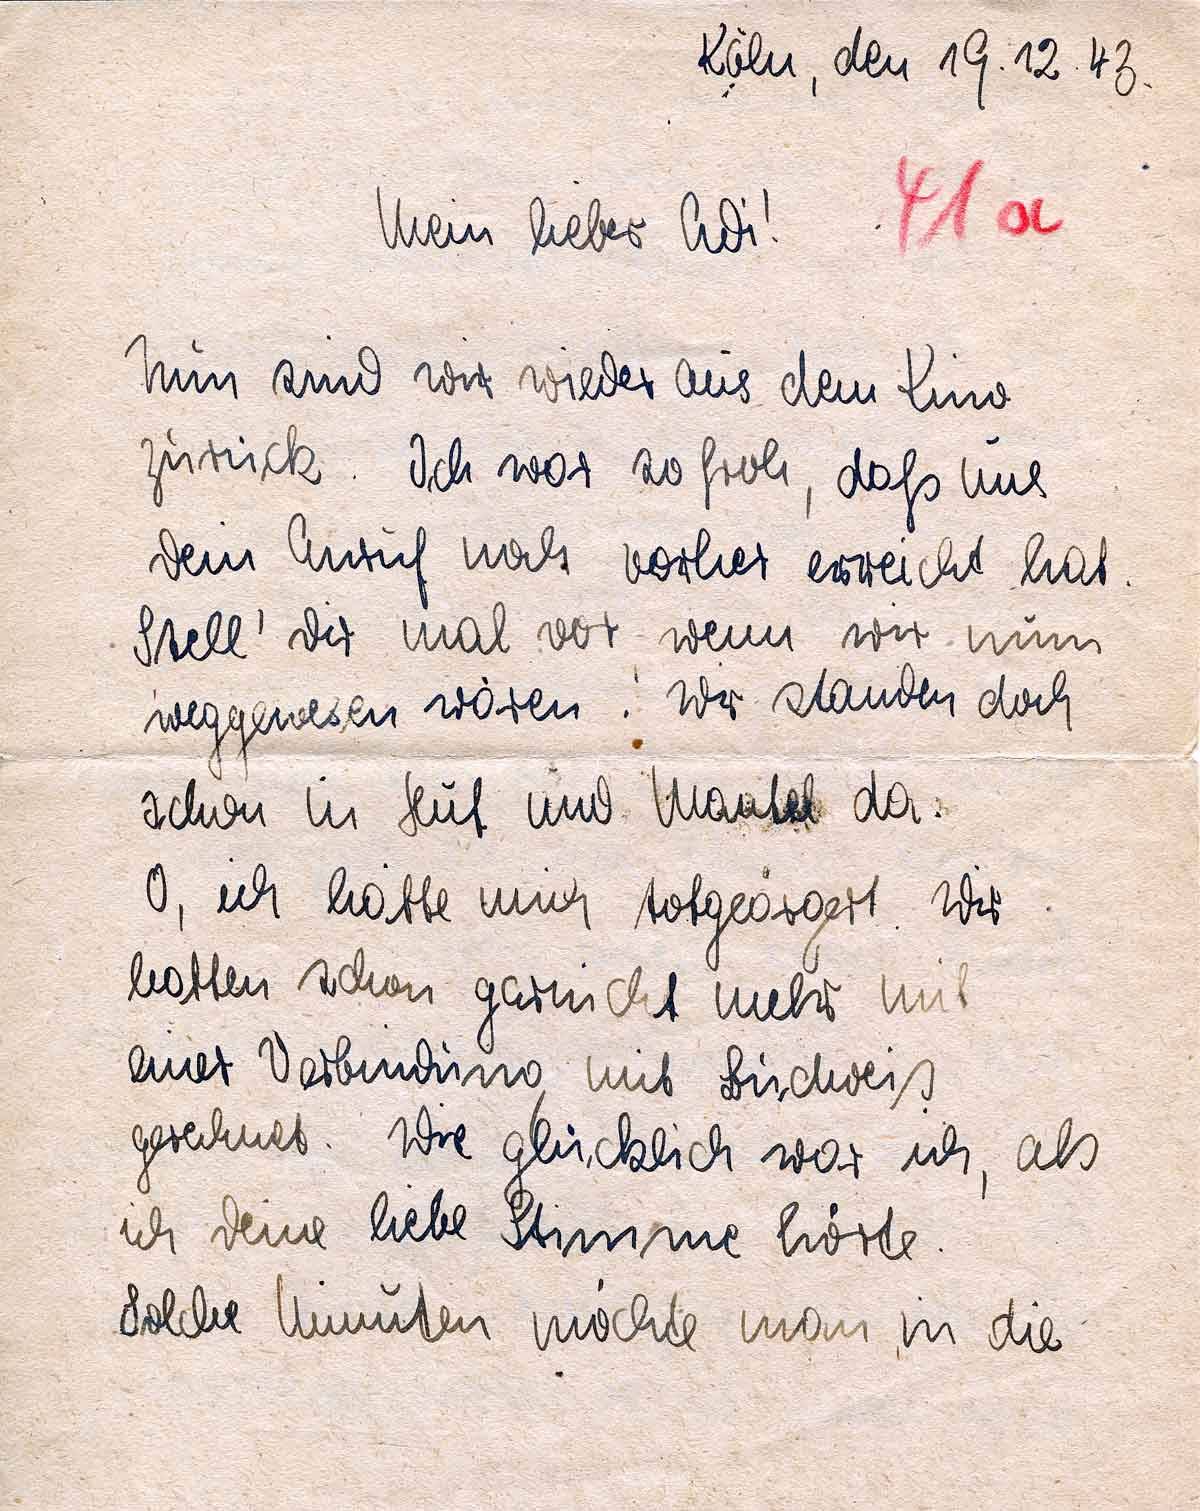 Köln, den 19.12.43.
41 a
Mein lieber Adi!
Nun sind wir wieder aus dem Kino
zurück. Ich war so froh, daß uns
dein Anruf noch vorher erreicht hat.
Stell' dir mal vor wenn wir nun
weggewesen wären! Wir standen doch
schon in Hut und Mantel da.
O, ich hätte mich totgeärgert. Wir
hatten schon garnicht mehr mit
einer Verbindung mit
gerechnet. Wie glücklich war ich, als
ich deine liebe Stimme hörte.
Solche Minuten möchte man in die